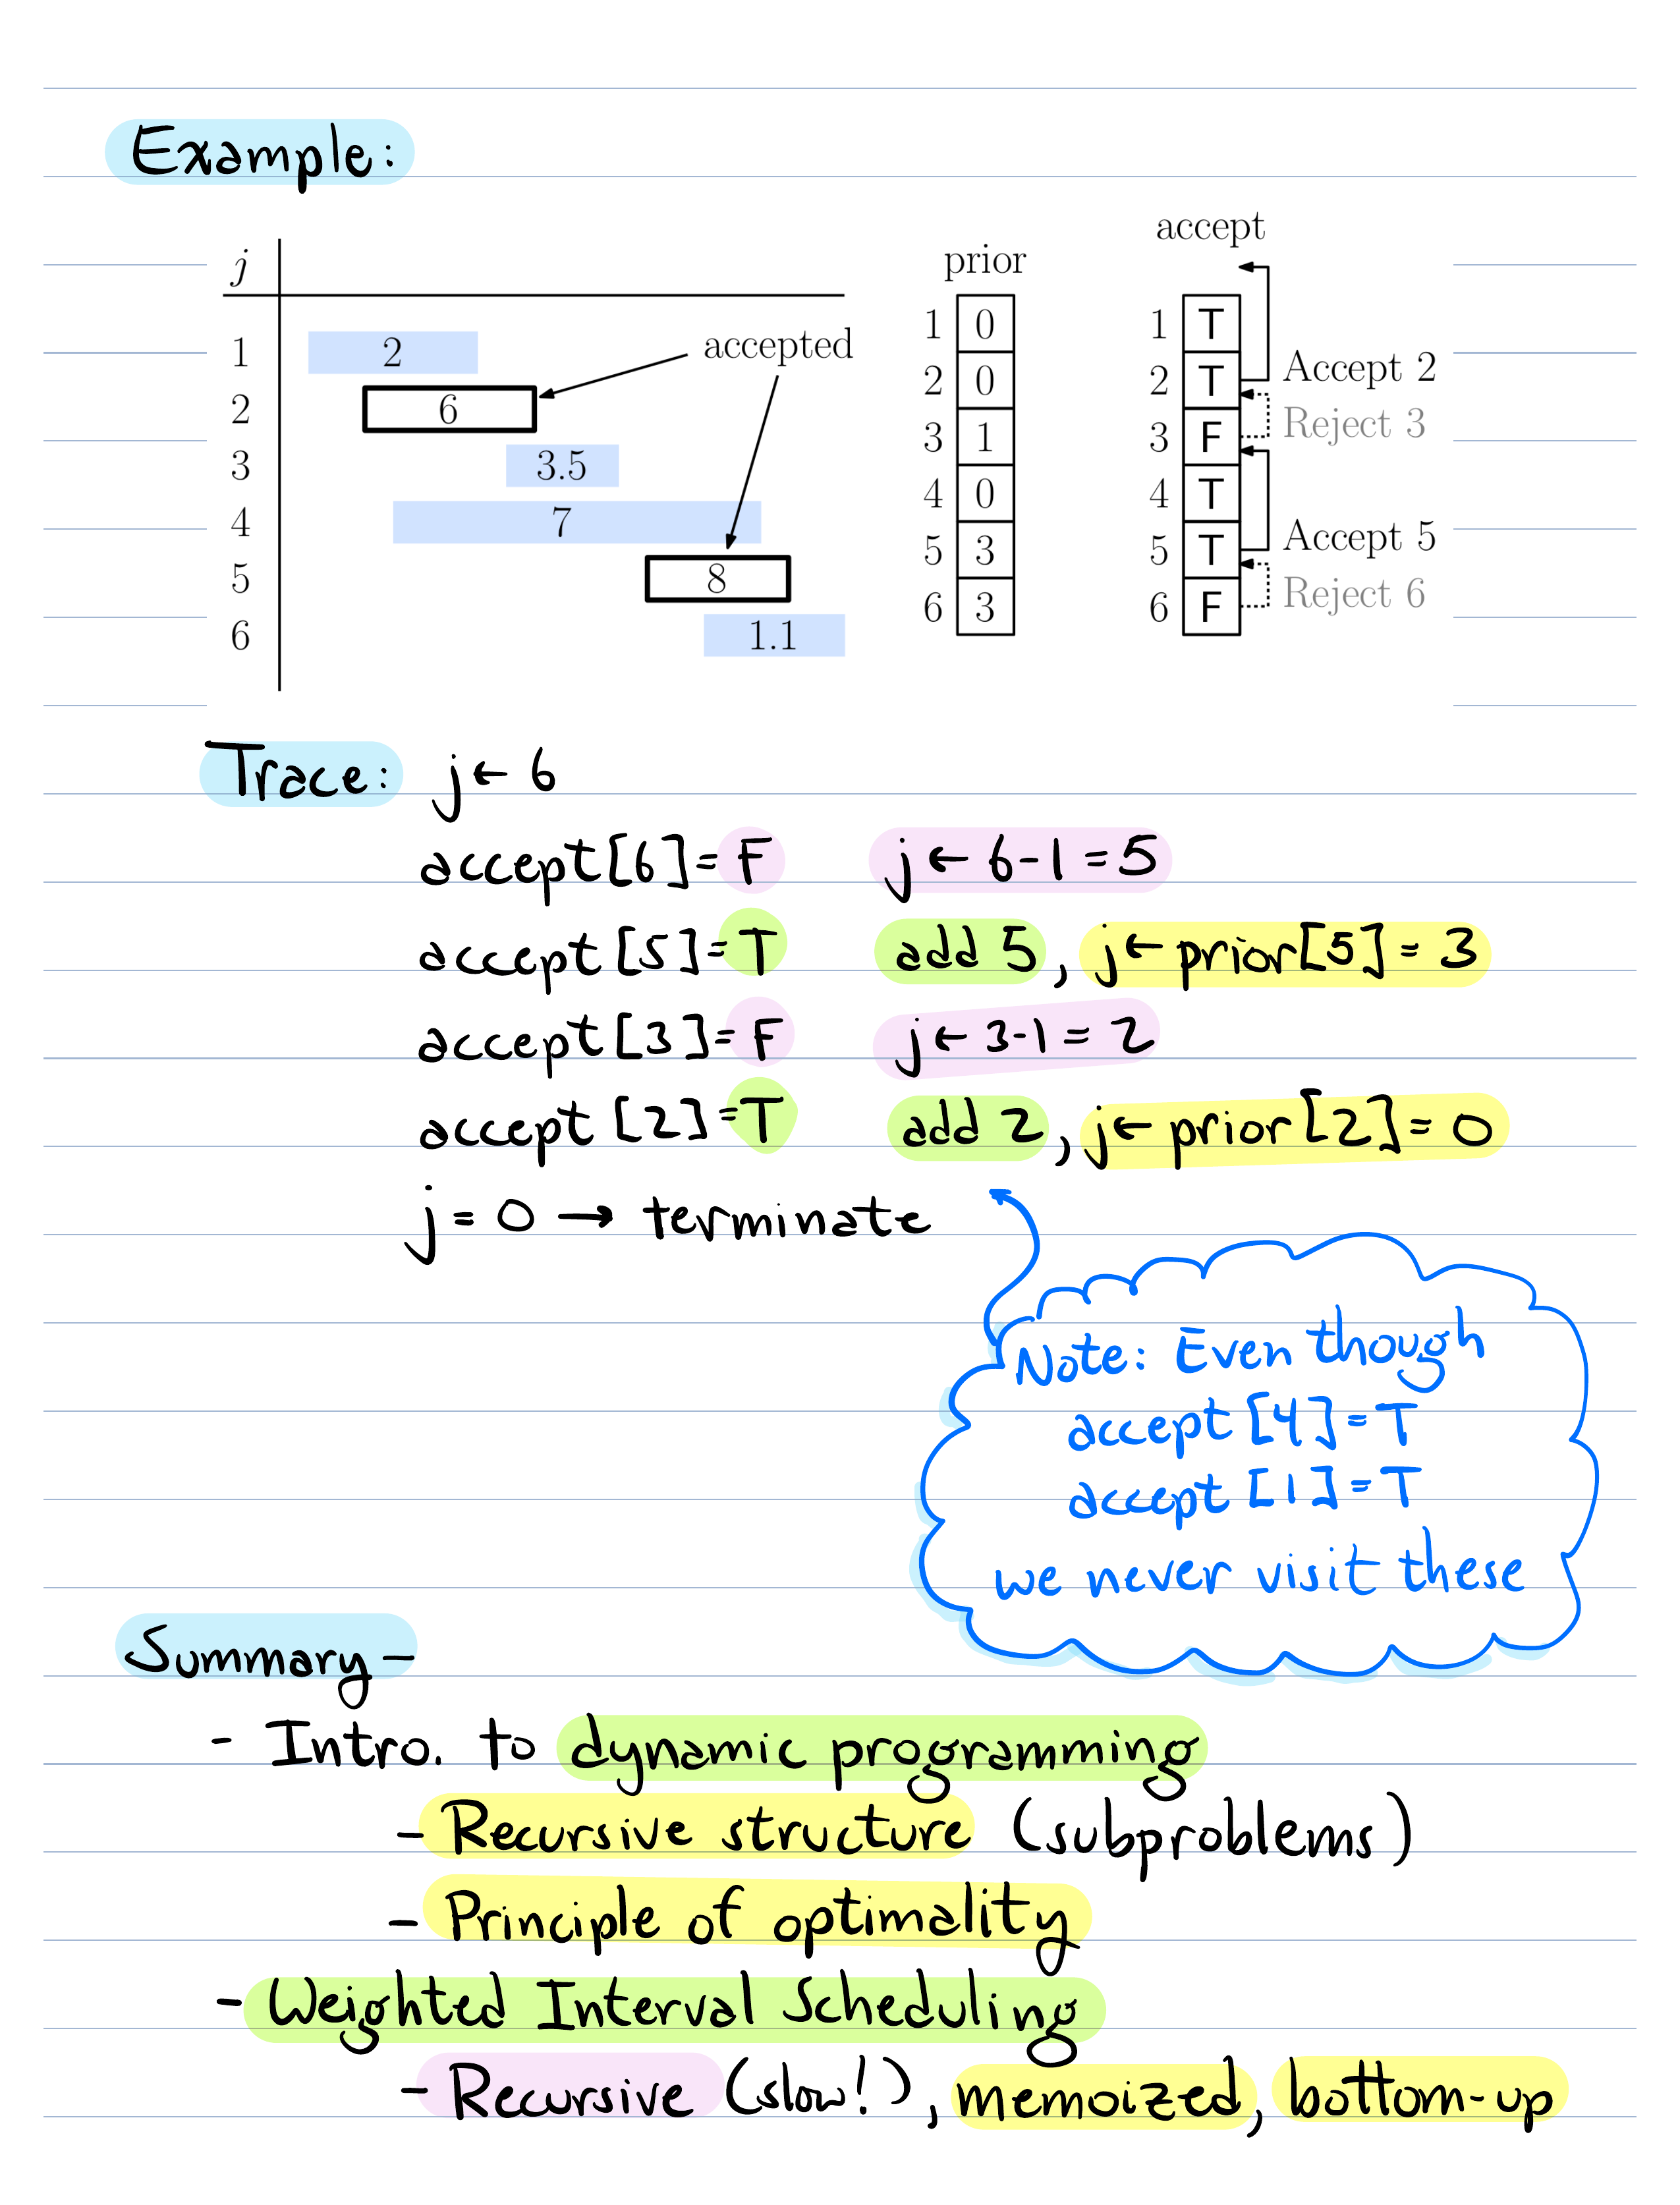 Example:
j
1 2
2 6
3 3.5
4 7
5 8
6 1.1
accepted
prior
1 0
2 0
3 1
4 0
5 3
6 3
accept
1 T
2 T Accept 2
3 F Reject 3
4 T
5 T Accept 5
6 F Reject 6
Trace: j ← 6
accept[6]= F j ← 6-1 = 5
accept[5]= T add 5, j ← prior[5] = 3
accept[3]= F j ← 3-1 = 2
accept[2]= T add 2, j ← prior[2] = 0
j = 0 → terminate
Note: Even though
accept[4]=T
accept[1]=T
we never visit these
Summary -
- Intro. to dynamic programming
- Recursive structure (subproblems)
- Principle of optimality
- Weighted Interval Scheduling
- Recursive (slow!), memoized, bottom-up